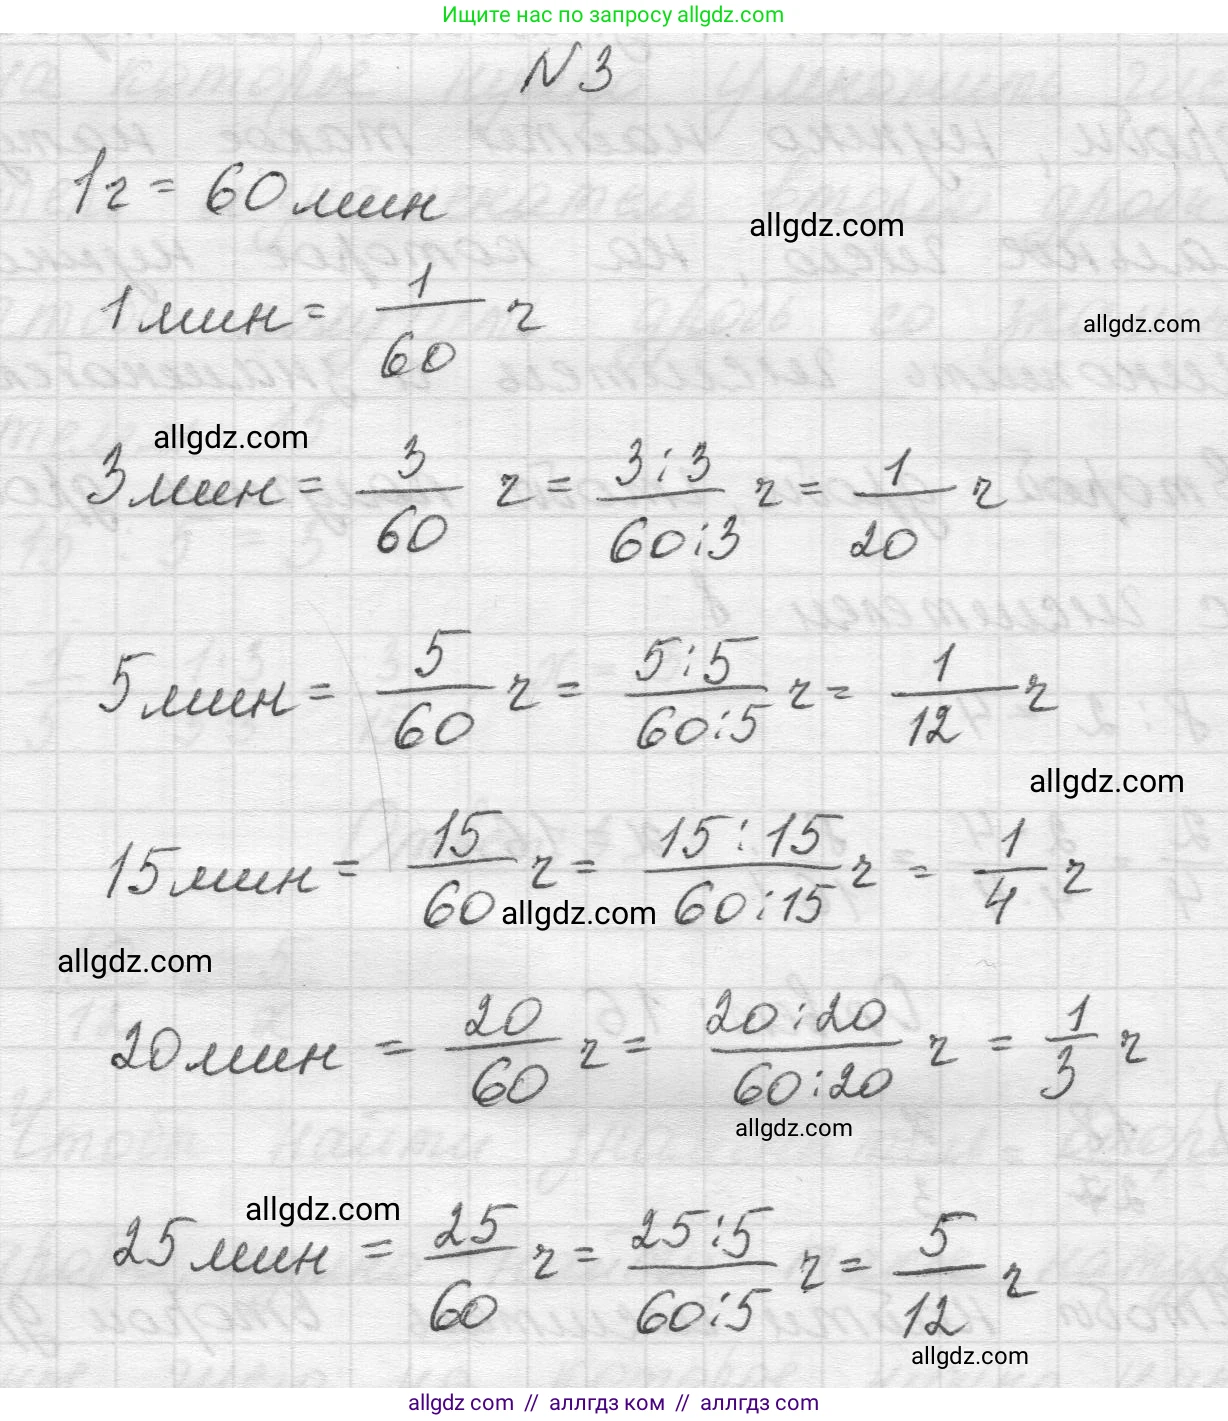 Ищите нас по запросу allgdz.com
N 3
1ч = 60 мин
allgdz.com
1 мин = 1/60 ч
allgdz.com
allgdz.com
3 мин = 3/60 ч = 3:3/60:3 ч = 1/20 ч
5 мин = 5/60 ч = 5:5/60:5 ч = 1/12 ч
allgdz.com
15 мин = 15/60 ч = 15:15/60:15 ч = 1/4 ч
allgdz.com
allgdz.com
20 мин = 20/60 ч = 20:20/60:20 ч = 1/3 ч
allgdz.com
allgdz.com
25 мин = 25/60 ч = 25:5/60:5 ч = 5/12 ч
allgdz.com
allgdz.com // аллгдз ком // allgdz.com